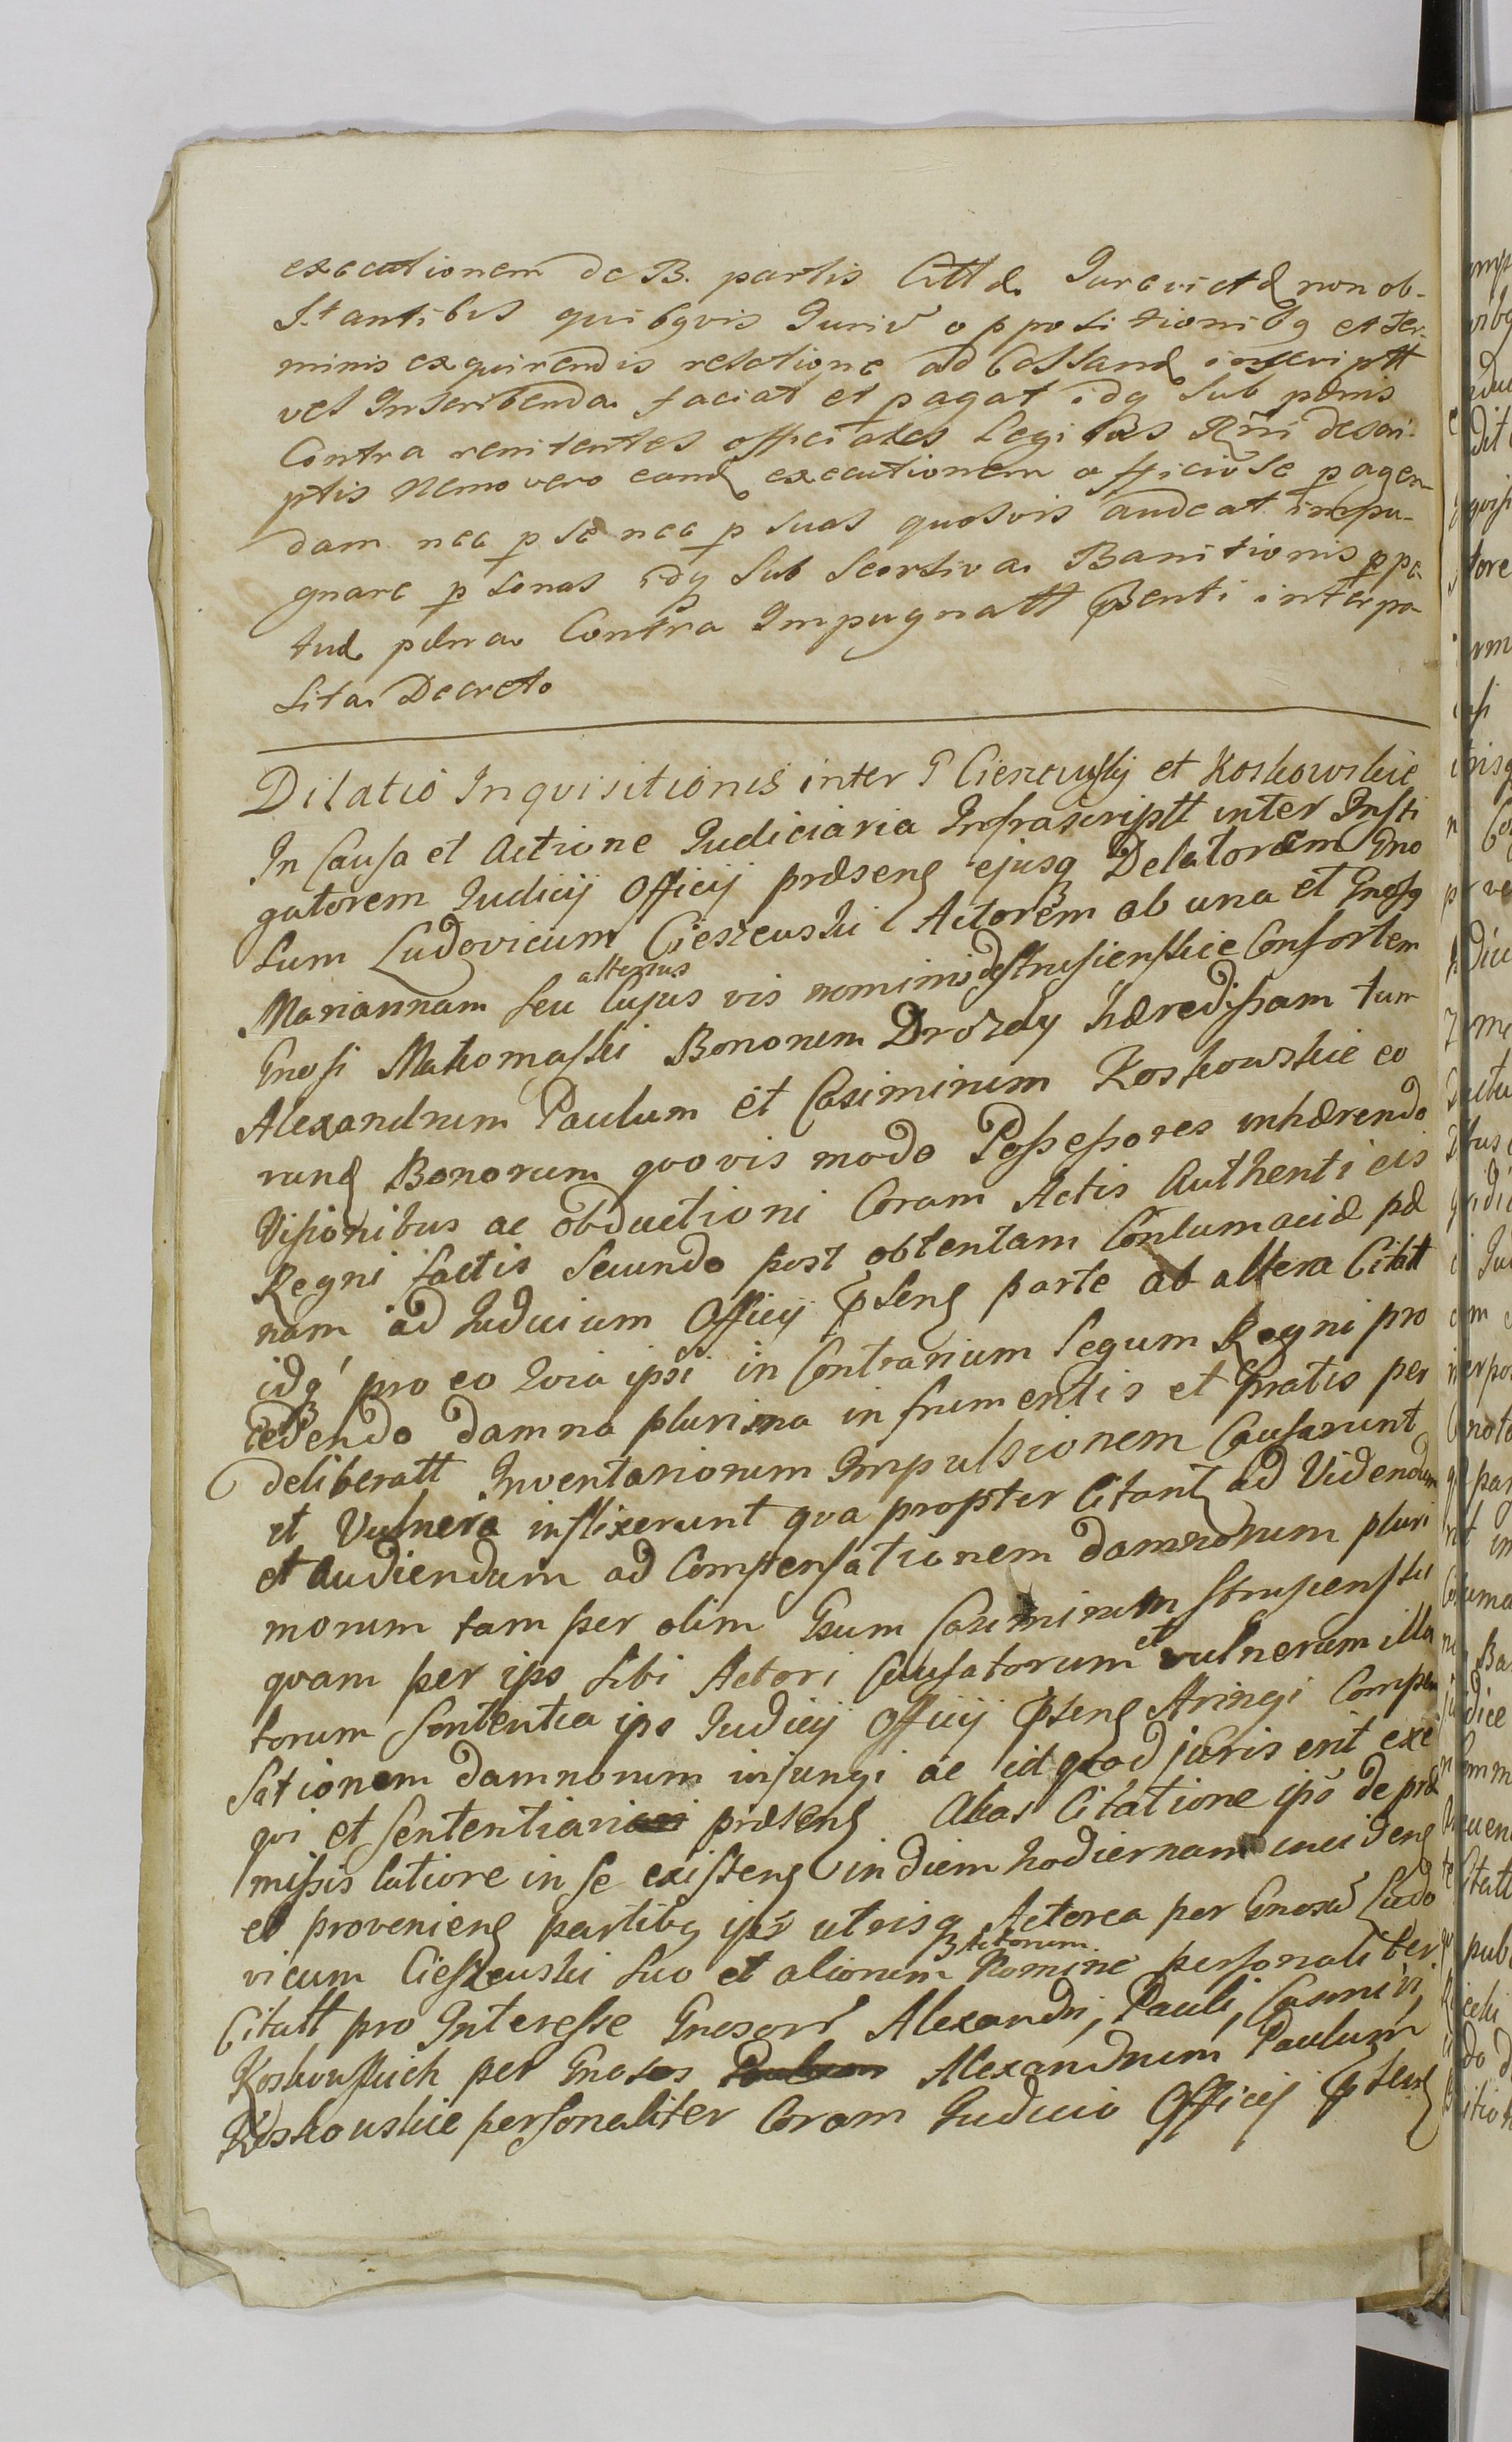 executionem de B. partis Citt d. Jurevictæ non ob-
stantibus quibgvis Juris oppositionibg et ter-
minis exquirendis relatione ad Cassand inscriptt
vel Inscribenda faciat et pagat idq sub pænis
Contra renitentes officiales Legibus Rñi descri-
ptis Nemo vero eand executionem officiose pagen-
dam nec p se nec p suas quosvis audeat impu-
gnare psonas idq sub seorsiva Banitionis ppe-
tuæ pæna Contra Impugnatt Psenti interpo-
sita Decreto
Dilatio Inquisitionis inter G Cieszewskij et Koskowskie
In Causa et Actione Judiciaria Infrascriptt inter Insti
gatorem Judicij Officij præsens ejusq Delatorem Gno
sum Ludovicum Cieszewski Actorem ab una et Gnosg
Mariannam seu alterius cujus vis nominis de Strusienskie Consortem
Gnosi Makomaski Bonorum Drozdy hæredissam tum
Alexandrum Paulum et Casimirum Koskowskie eo
rund Bonorum quovis modo Possessores inhærendo
Visionibus ac obductioni Coram Actis Authenticis
Regni factis secundo post obtentam Contumaciæ pæ
nam ad Judicium Officij Psens parte ab altera Citatt
idq pro eo quia ipsi in Contrarium Legum Regni pro
cedendo damna plurima in frumentis et pratis per
deliberatt Inventariorum Impulsionem Causarunt
et Vulnera inflixerunt qva propter Citant ad Videndum
et Audiendum ad Compensationem damnorum pluri
morum tam per olim Gsum Casimirum Strusienski
qvam per ips sibi Actori Causatorum et vulnerum illa
torum Sententia ips Judicij Officij Psens stringi Compen
sationem damnorum injungi ac id qvod juris erit exe
qvi et sententiari præsens Alias Citatione ips de præ
missis latiore in se existens in diem hodiernam incidens
et proveniens partibg ips utrisq Actorea per Gnosũ Ludo
vicum Cieszewski suo et aliorum Actorum Nomine personaliter
Citatt pro Interesse Gnosorũ Alexandri, Pauli, Casimiri,
Koskowskich per Gnosos Paulum Alexandrum Paulum
Koskowskie personaliter Coram Judicio Officij Psens